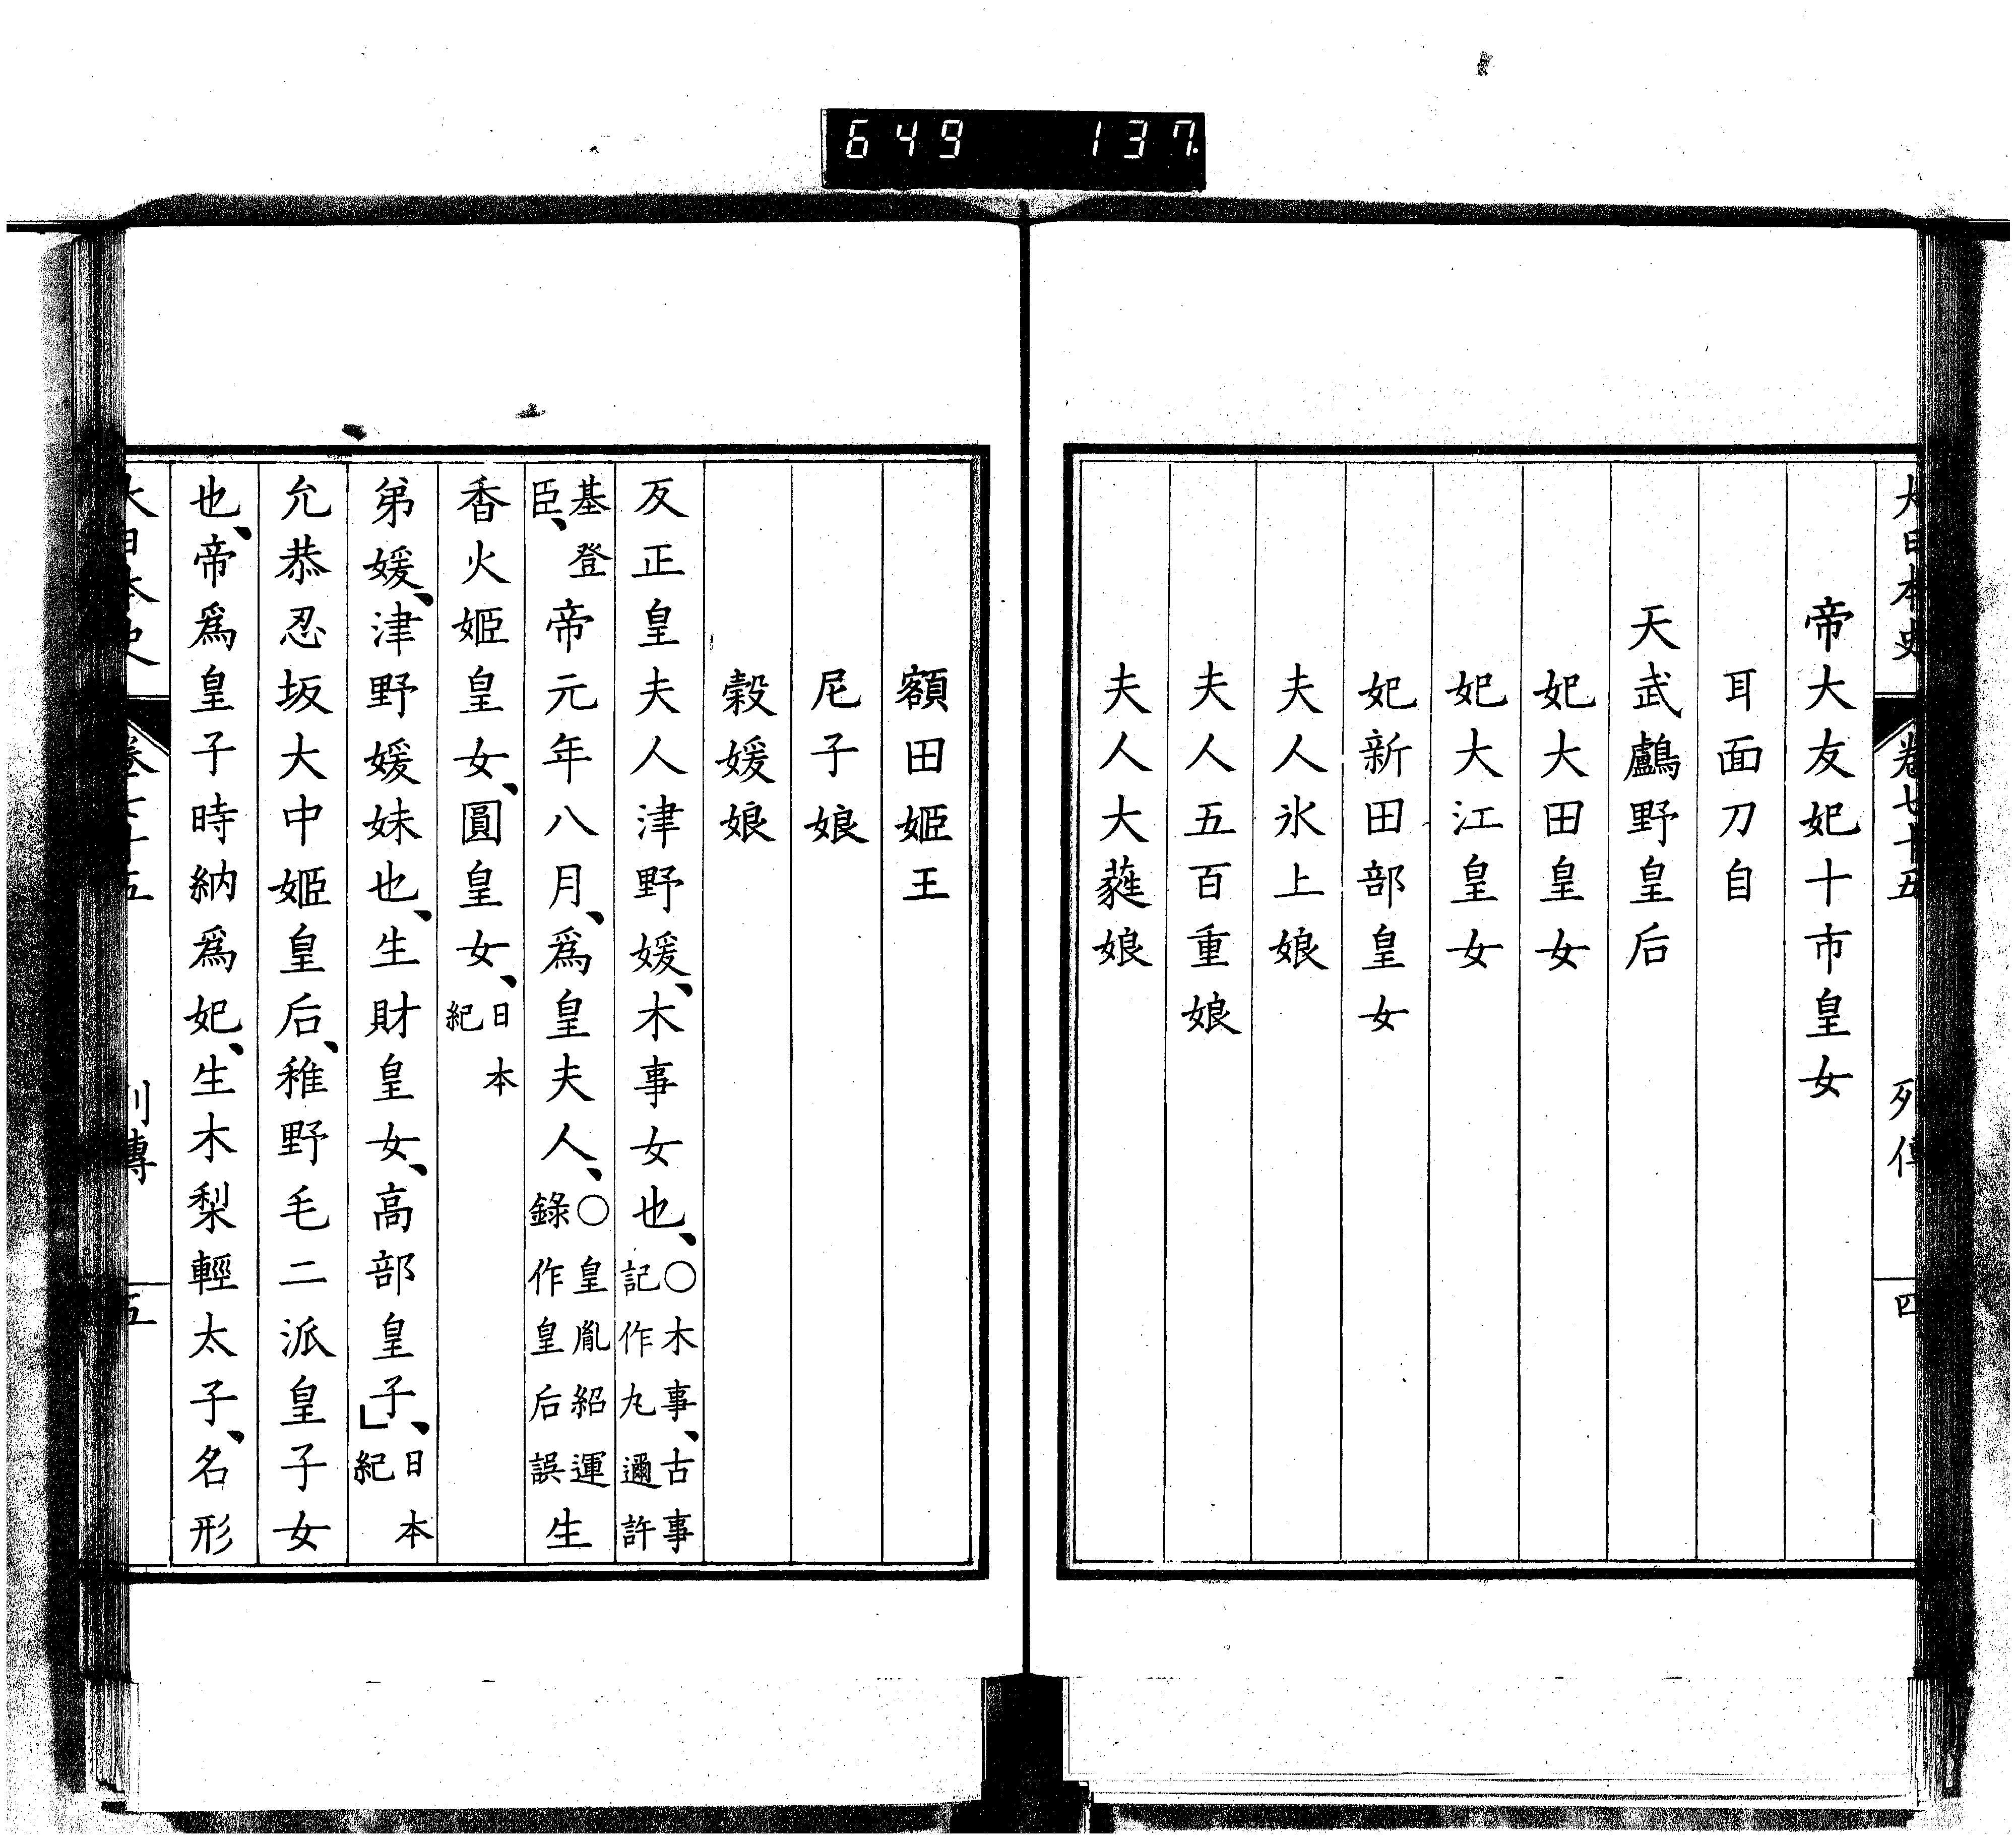 649 137
大日本史 卷七十五 列傳 四
帝大友妃十市皇女
耳面刀自
天武鸕野皇后
妃大田皇女
妃大江皇女
妃新田部皇女
夫人氷上娘
夫人五百重娘
夫人大蕤娘
額田姬王
尼子娘
穀媛娘
反正皇夫人津野媛、木事女也、〇木事、古事記作丸邇許
基登臣、帝元年八月、爲皇夫人、〇皇胤紹運錄作皇后誤生
香火姬皇女、圓皇女、日本紀
弟媛、津野媛妹也、生財皇女、高部皇子、」日本紀
允恭忍坂大中姬皇后、稚野毛二派皇子女
也、帝爲皇子時納爲妃、生木梨輕太子、名形
大日本史 卷七十五 列傳 五